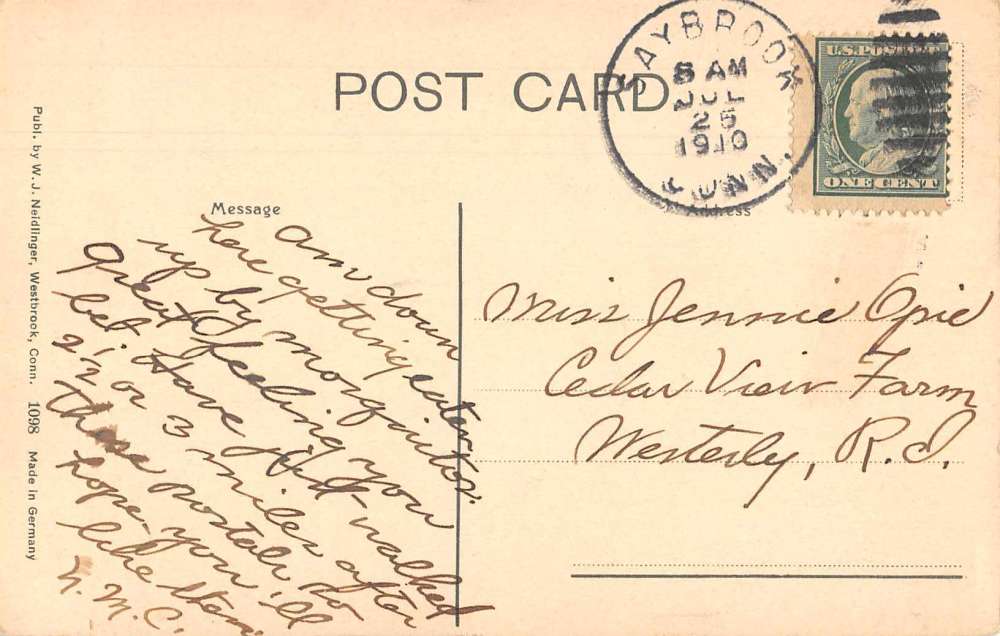 POST CARD
SAYBROOK
8 AM
JUL
25
1910
CONN.
U.S. POSTAGE
ONE CENT
Message
Address
am down
here getting eaten
up by mosquitos.
Great feeling you
bet. Have just walked
2 1/2 or 3 miles after
these postals so
hope you'll
like them
N. M. C.
Miss Jennie Opie
Cedar View Farm
Westerly, R. I.
Publ. by W. J. Neidlinger, Westbrook, Conn. 1098 Made in Germany